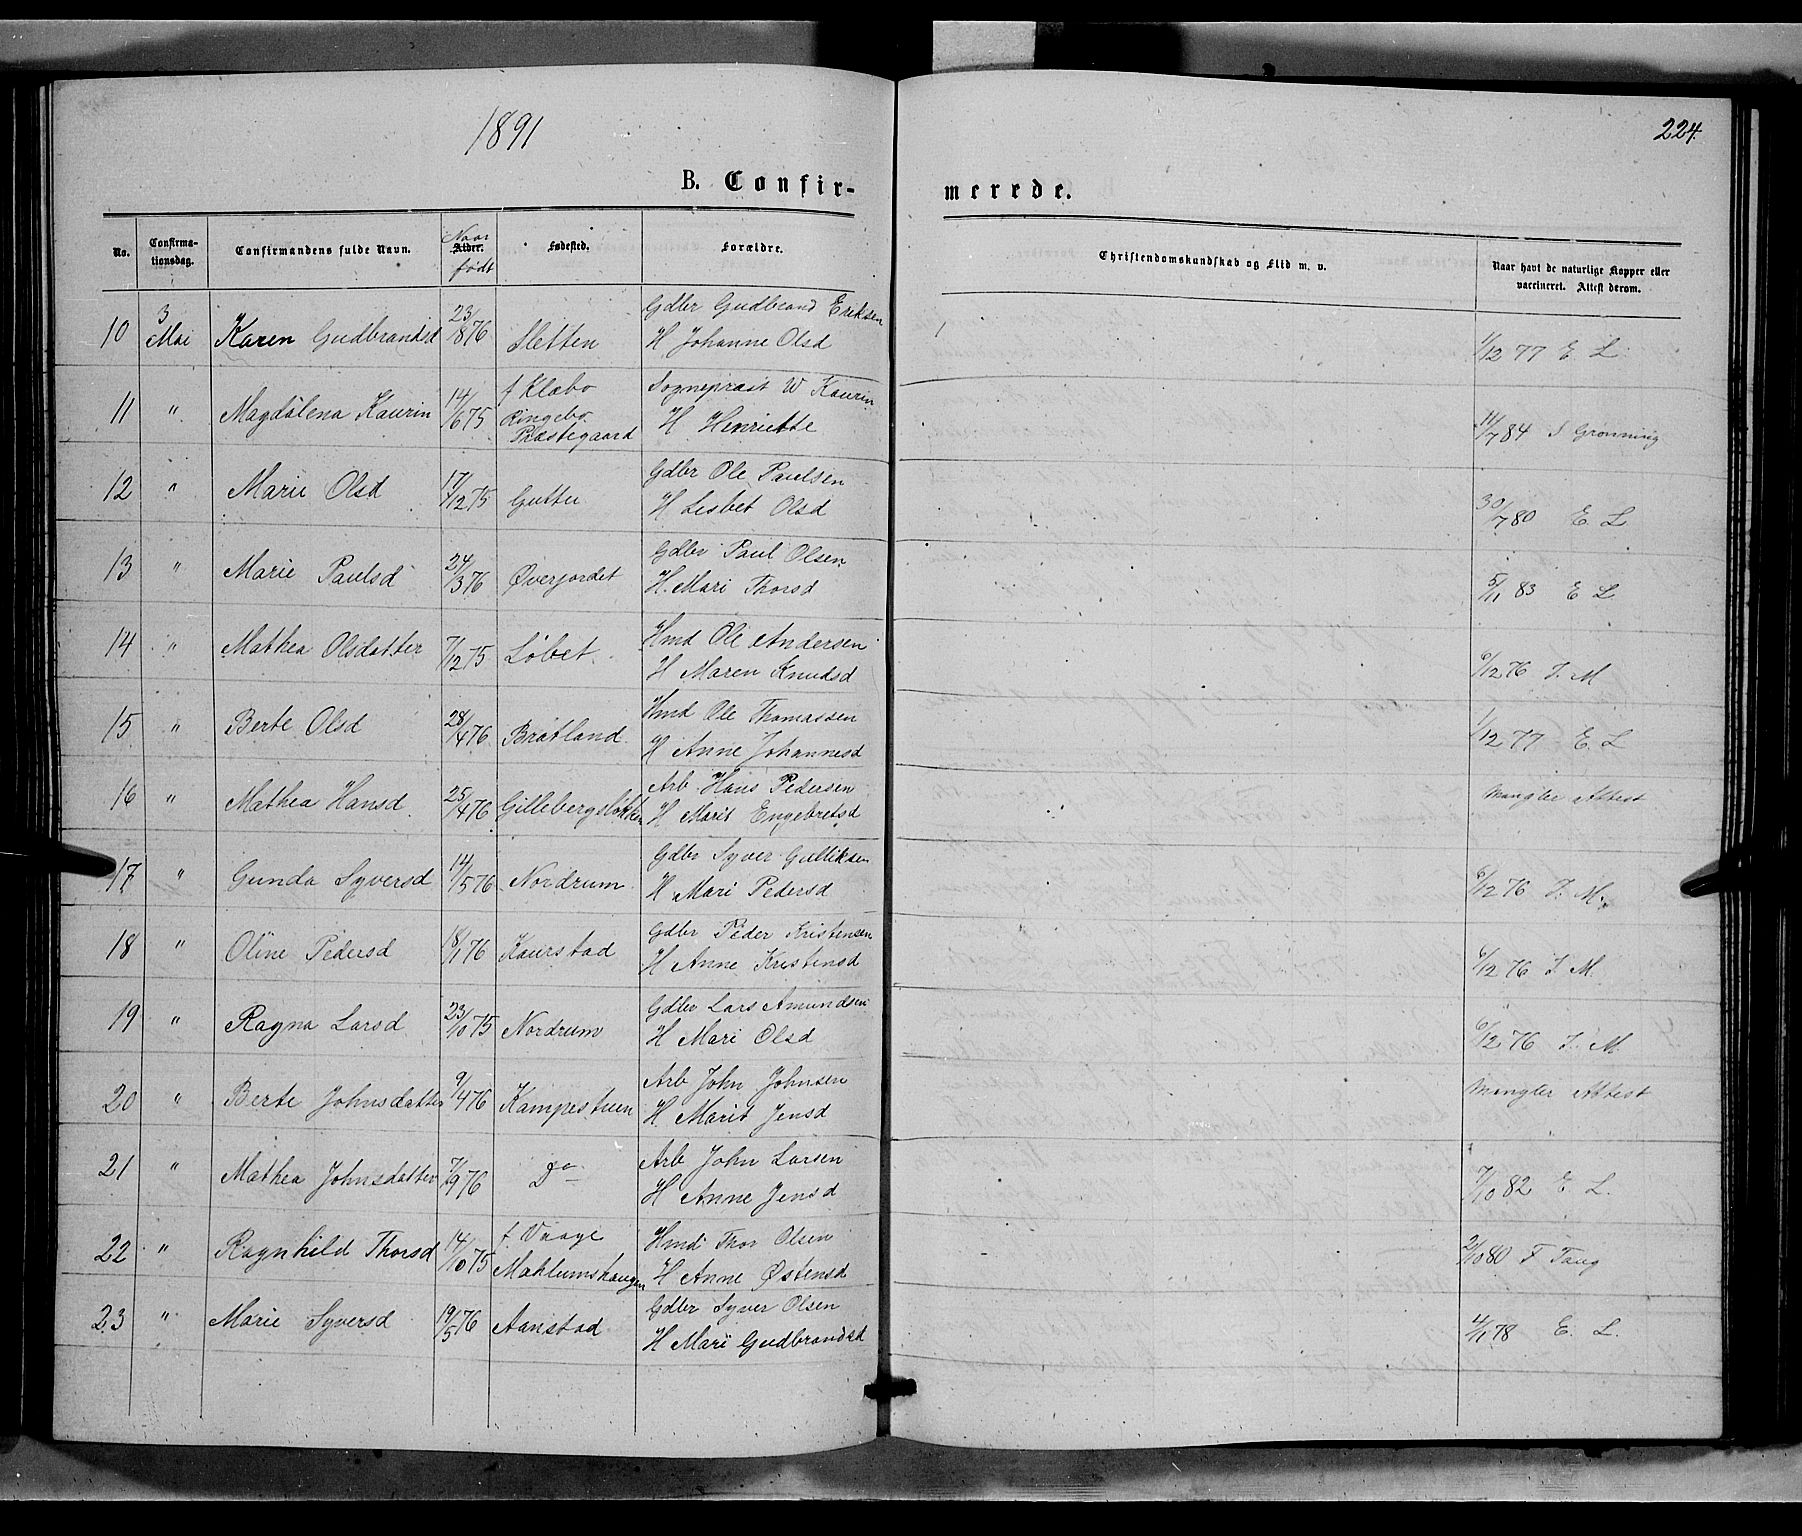 1891
224.
B. Confir-
merede.
No.
Confirma-
tionsdag.
Confirmandens fulde Navn.
Naar
Alder.
født
Fødested.
Forældre.
Christendomskundskab og Flid m. v.
Naar havt de naturlige Kopper eller
vaccineret. Attest derom.
10 3 Mai Karen Gudbrandsd 23/8 76 Sletten Gdbr Gudbrand Eriksen
H Johanne Olsd 1/12 77 E L.
11 " Magdalena Kaurin 14/6 75 f Klæbo Ringebo Præstegaard Sognepræst W Kaurin
H Henriette 14/7 84 S Grønning
12 " Marie Olsd 17/12 75 Guttu Gdbr Ole Paulsen
H Lisbet Olsd 30/7 80 E. L
13 " Marie Paulsd 24/3 76 Øverjordet Gdbr Paul Olsen
H. Mari Thorsd 5/11 83 E L
14 " Mathea Olsdatter 7/12 75 Løbet. Hmd Ole Andersen
H Maren Knudsd 6/12 76 J. M
15 " Berte Olsd 28/4 76 Bratland. Hmd Ole Thomassen
H Anne Johannesd 1/12 77 E. L
16 " Mathea Hansd. 25/4 76 Gillebergsløkken Arb Hans Pedersen
H Marit Engebretsd Mangler Attest
17 " Gunda Syversd 14/5 76 Nordrum. Gdbr Syver Gulliksen
H Mari Pedersd 6/12 76 J. M.
18 " Oline Pedersd 18/1 76 Kaurstad Gdbr Peder Kristensen
H Anne Kristensd 6/12 76 J. M.
19 " Ragna Larsd 23/10 75 Nordrum Gdbr Lars Amundsen
H Mari Olsd 6/12 76 J. M.
20 " Berte Johnsdatter 9/4 76 Kampestuen Arb John Johnsen
H Marit Jensd Mangler Attest
21 " Mathea Johnsdatter 7/9 76 Do Arb John Larsen
H Anne Jensd 7/10 82 E L.
22 " Ragnhild Thorsd 14/10 75 f Vaage Mahlumshaugen Hmd Thor Olsen
H Anne Østensd 2/10 80 F Tang
23 " Marie Syversd 19/5 76 Aanstad Gdbr Syver Olsen
H Mari Gudbrandsd 4/1 78 E. L.